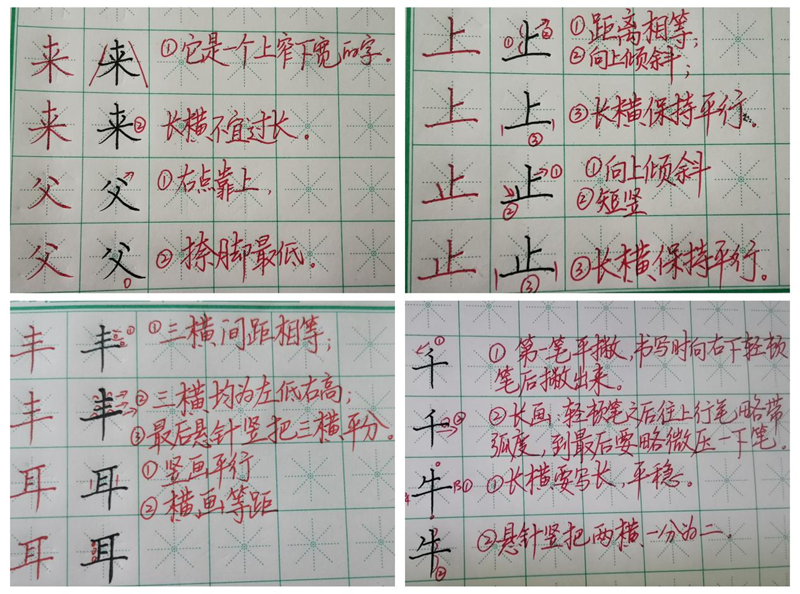 来 来 ①它是一个上窄下宽的字.
来 来② 长横不宜过长。
父 父 ①右点靠上,
父 父 ②捺脚最低。
上 上 ①距离相等;
②向上倾斜;
上 上 ③长横保持平行。
止 止 ①向上倾斜
②短竖
止 止 ③长横保持平行。
丰 丰 ①三横间距相等;
丰 丰 ②三横均为左低右高;
③最后悬针竖把三横平分。
耳 耳 ①竖画平行
②横画等距
耳 耳
千 ①第一笔平撇,书写时向右下轻顿
笔后撇出来。
千 ②长画:轻顿笔之后往上行笔略带
弧度,到最后要略微压一下笔。
牛 ①长横要写长,平稳。
牛 ②悬针竖把两横一分为二。